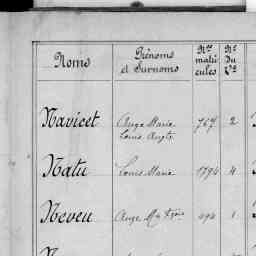 Noms Prénoms et Surnoms Nos matricules No du Vre
Navicet Ange Marie 767 2
Louis Augte
Natu Louis Marie 1794 4
Neveu Ange Mie Fçois 494 1